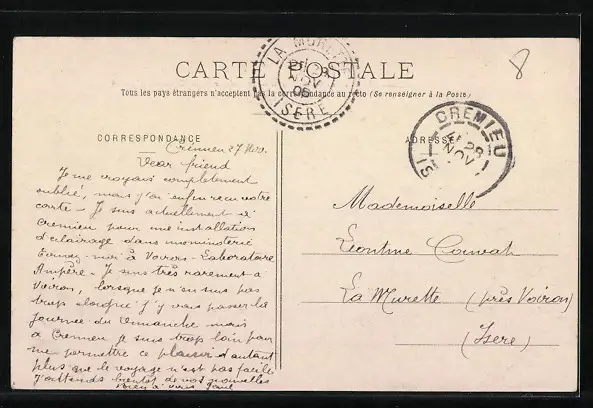 CARTE POSTALE
Tous les pays étrangers n'acceptent pas la correspondance au recto (Se renseigner à la Poste)
LA MURETTE
28
NOV
05
ISÈRE
8
CREMIEU
28
NOV
CORRESPONDANCE
ADRESSE
Cremieu 27 Nov.
Dear friend
Je me croyais complètement
oublié, mais j'ai enfin reçu votre
carte - Je suis actuellement à
Cremieu pour une installation
d'éclairage dans
à Voiron - Laboratoire
Ampère - Je suis très rarement à
Voiron, lorsque je n'en suis pas
trop éloigné j'y vais passer la
journée du Dimanche mais
à Cremieu je suis trop loin pour
me permettre ce plaisir d'autant
plus que le voyage n'est pas facile
J'attends bientôt de vos nouvelles
Bien à vous
Mademoiselle
Léontine
La Murette (près Voiron)
(Isère)